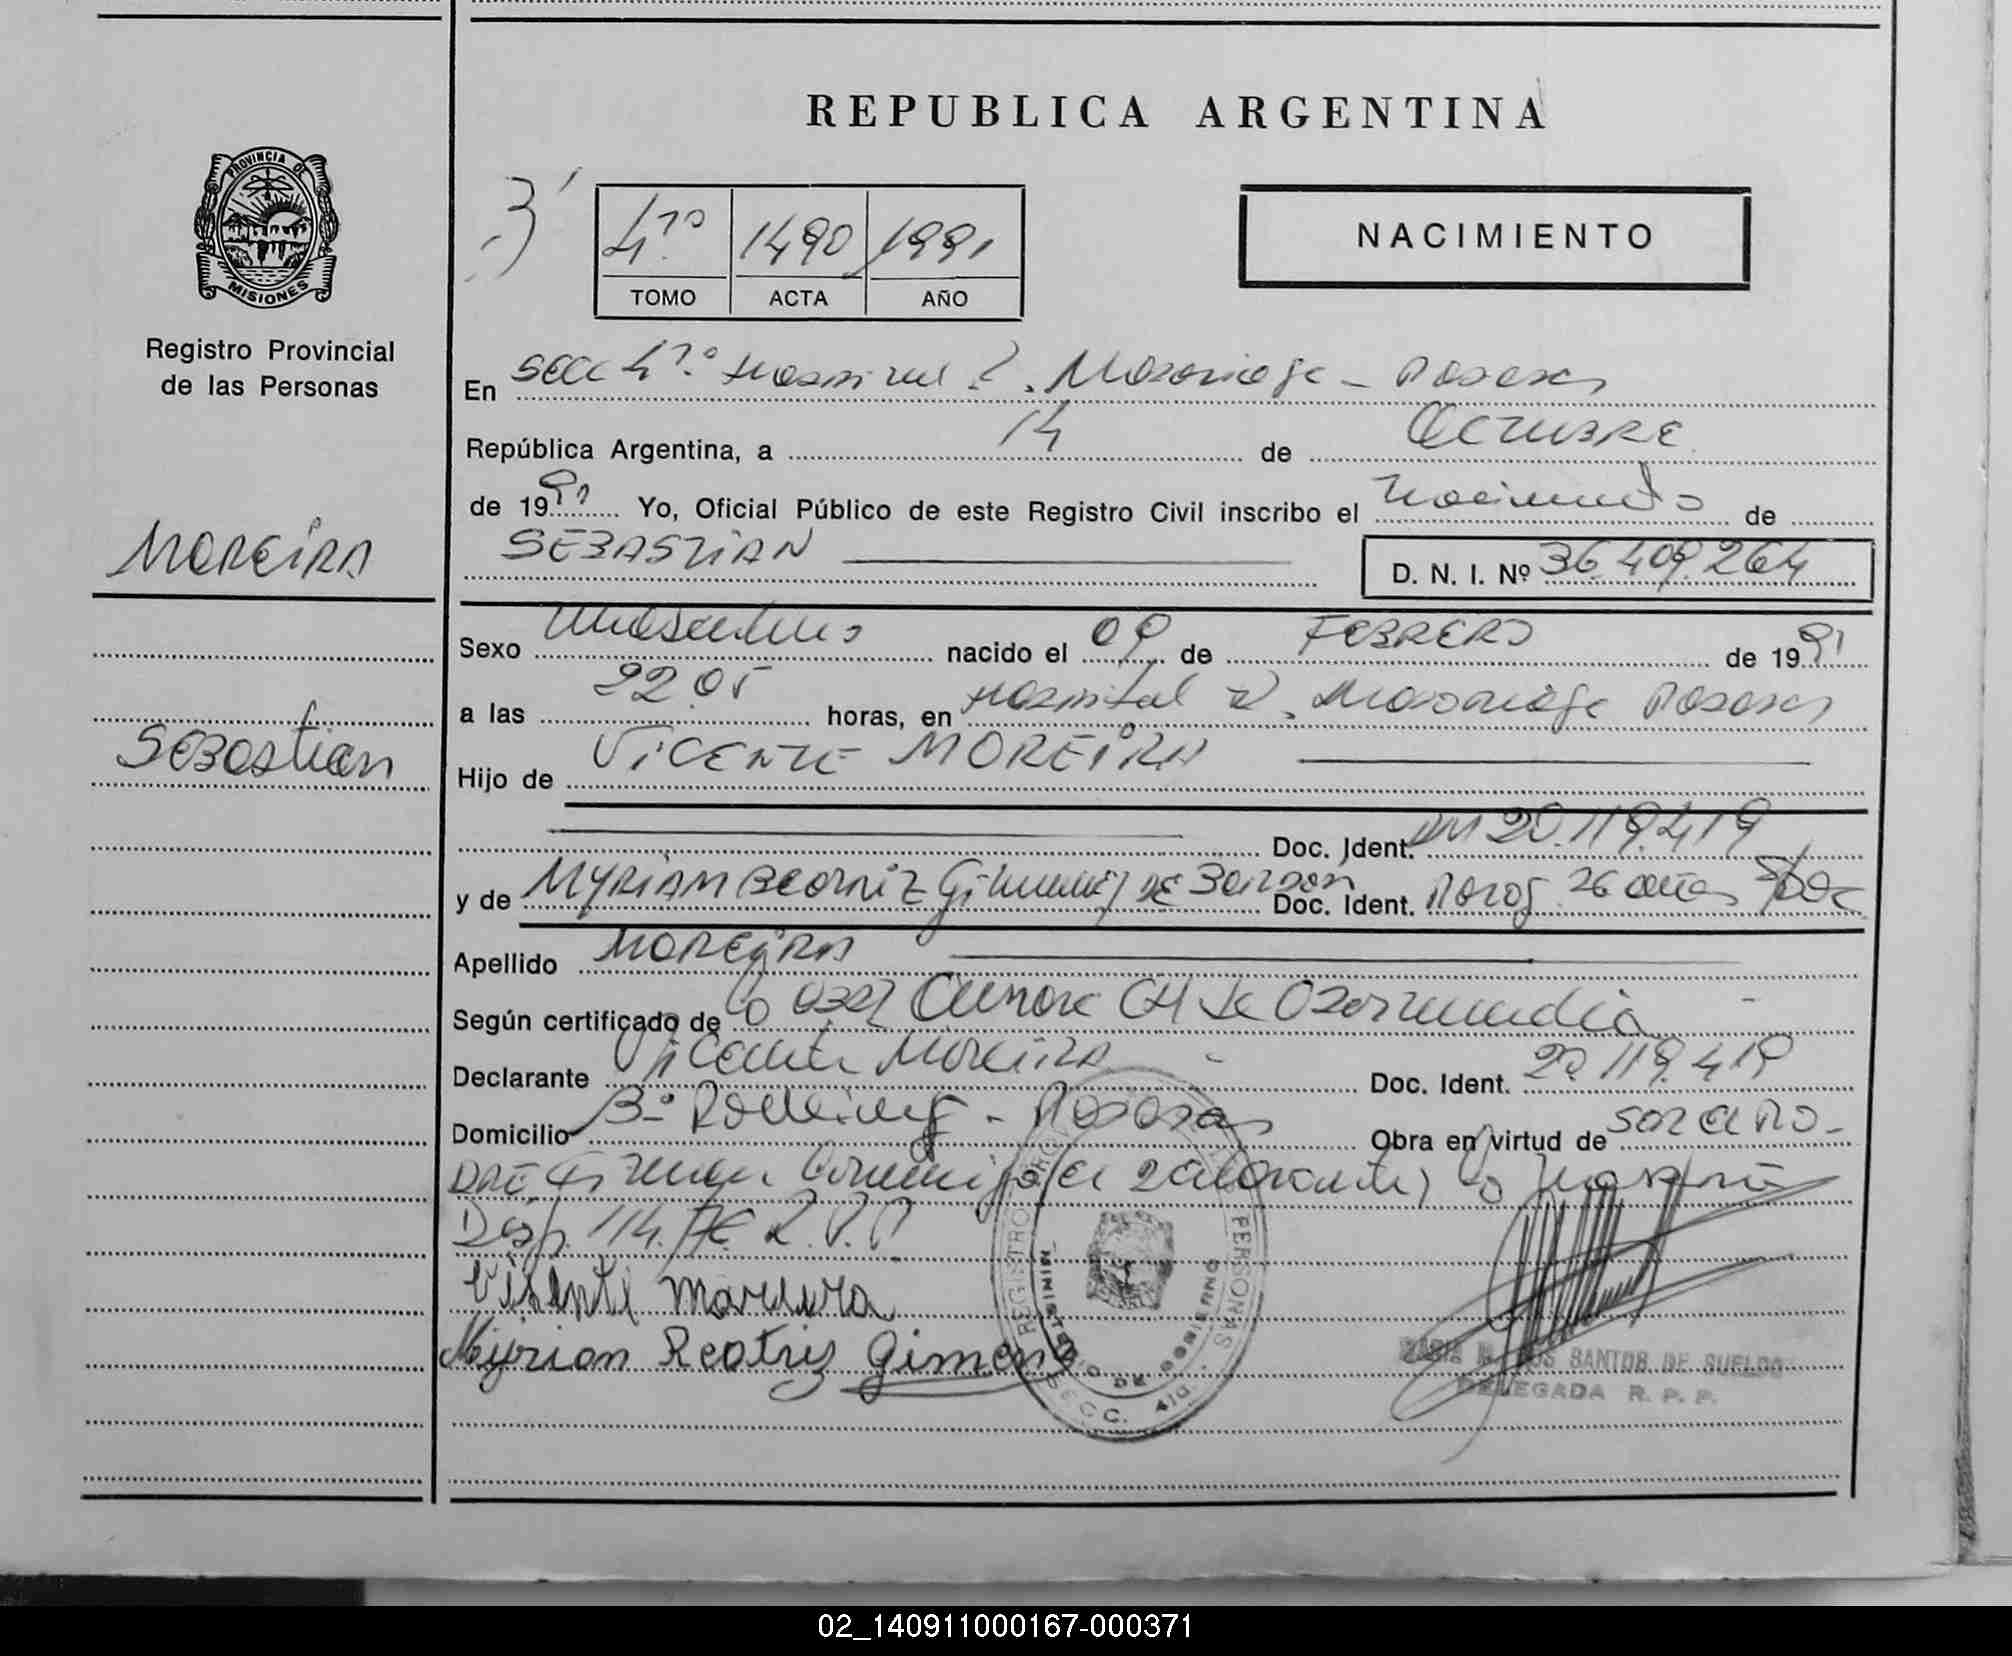 REPUBLICA ARGENTINA
PROVINCIA DE
MISIONES
Registro Provincial
de las Personas
4to 1490 1991
TOMO ACTA AÑO
NACIMIENTO
En Secc 4to Hospital R. Madariaga - Posadas
República Argentina, a 14 de OCTUBRE
de 1991 Yo, Oficial Público de este Registro Civil inscribo el nacimiento de
SEBASTIAN
D. N. I. Nº 36.409.264
MOREIRA
Sebastian
Sexo masculino nacido el 09 de FEBRERO de 1991
a las 22.05 horas, en Hospital R. Madariaga Posadas
Hijo de VICENTE MOREIRA
Doc. Ident. DNI 20.119.419
y de MYRIAM Beatriz Gimenez Doc. Ident. 26 años
Apellido MOREIRA
Según certificado de
Declarante Vicente Moreira Doc. Ident. 20.119.419
Domicilio Bº - Posadas Obra en virtud de
Disp. 114
Visente Moreira
Myrian Beatriz Gimenez
REGISTRO PERSONAS
MINISTERIO DE GOBIERNO
SECC.
SANTOS DE SUELDO
DELEGADA R. P. P.
02_140911000167-000371